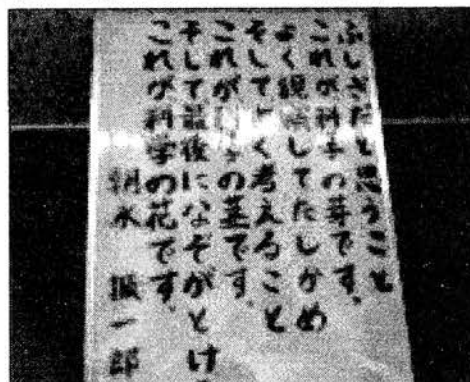 ふしぎだと思うこと
これが科学の芽です。
よく観察してたしかめ
そしてよく考えること
これが科学の茎です。
そして最後になぞがとけ
これが科学の花です。
朝永 振一郎